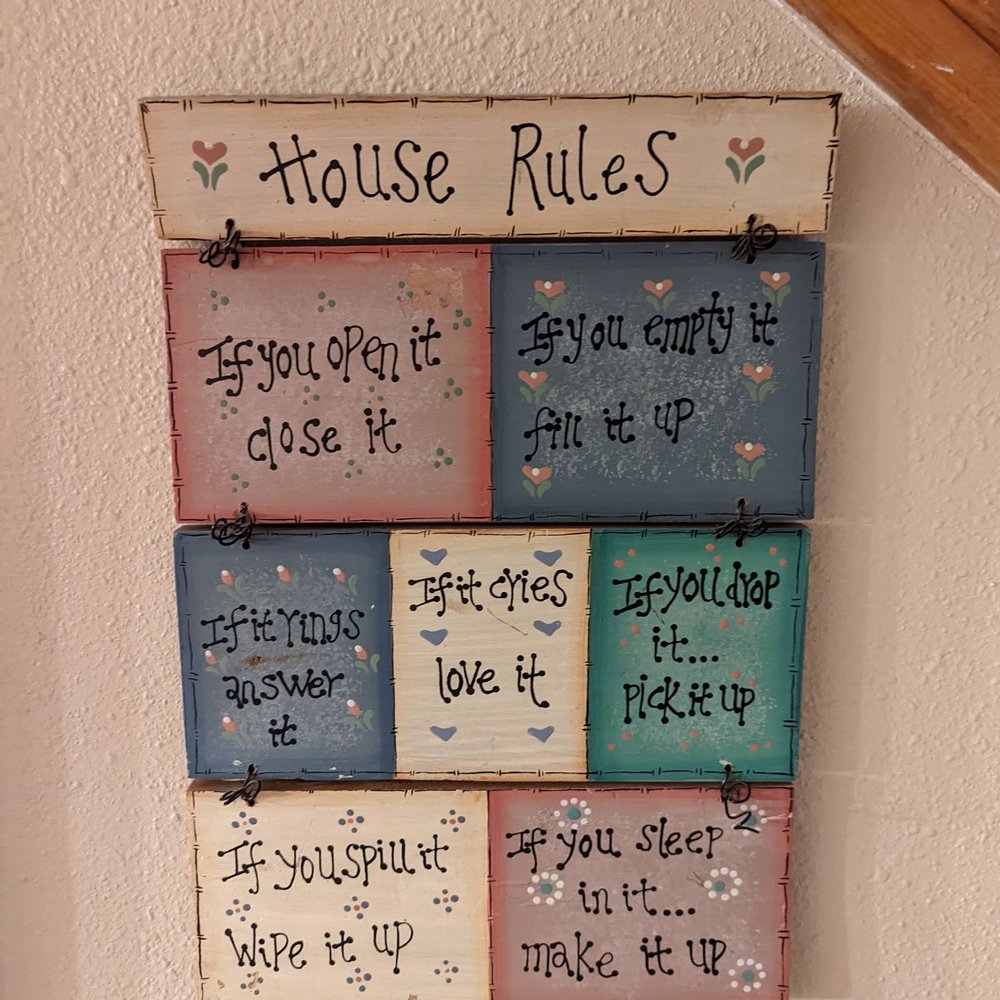 House Rules
If you open it
close it
If you empty it
fill it up
If it rings
answer
it
If it cries
love it
If you drop
it...
pick it up
If you spill it
Wipe it up
If you sleep
in it...
make it up